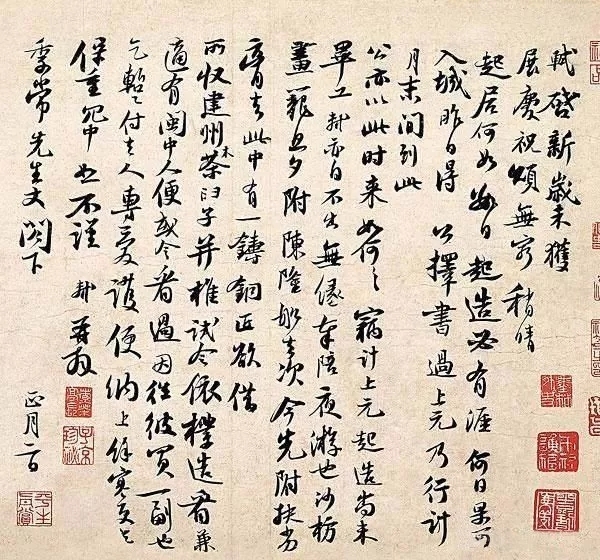 軾啓新歲未獲
展慶祝頌無窮稍晴
起居何如數日起造必有涯何日果可
入城昨日得公擇書過上元乃行計
月末間到此
公亦以此時來如何々竊計上元起造尚未
畢工軾亦自不出無緣奉陪夜遊也沙枋
畫籠旦夕附陳隆船去次今先附扶劣
膏去此中有一鑄銅匠欲借
所收建州木茶臼子并椎試令依樣造看兼
適有閩中人便或令看過因往彼買一副也
乞暫付去人專愛護便納上餘寒更乞
保重冗中恕不謹軾再拜
季常先生丈閣下
正月二日
子京珍秘
平生真賞